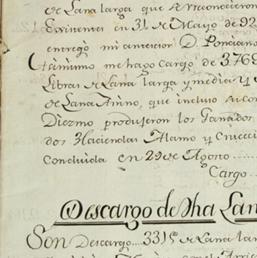 de Lana larga que se reconocieron
Existentes en 31 de Mayo de 92
entrego mi anterior D. Ponciano
Ytt. mismo me hago cargo de 3.769
Libras de Lana larga y media y
de Lana Anino, que incluso su con
Diezmo produjeron los Ganados
dos Haciendas Alamo y Cruceci
Concluida en 29 de Agosto
Cargo
Descargo de dha Lan
Son Descargo 331 lbs de Lana lar